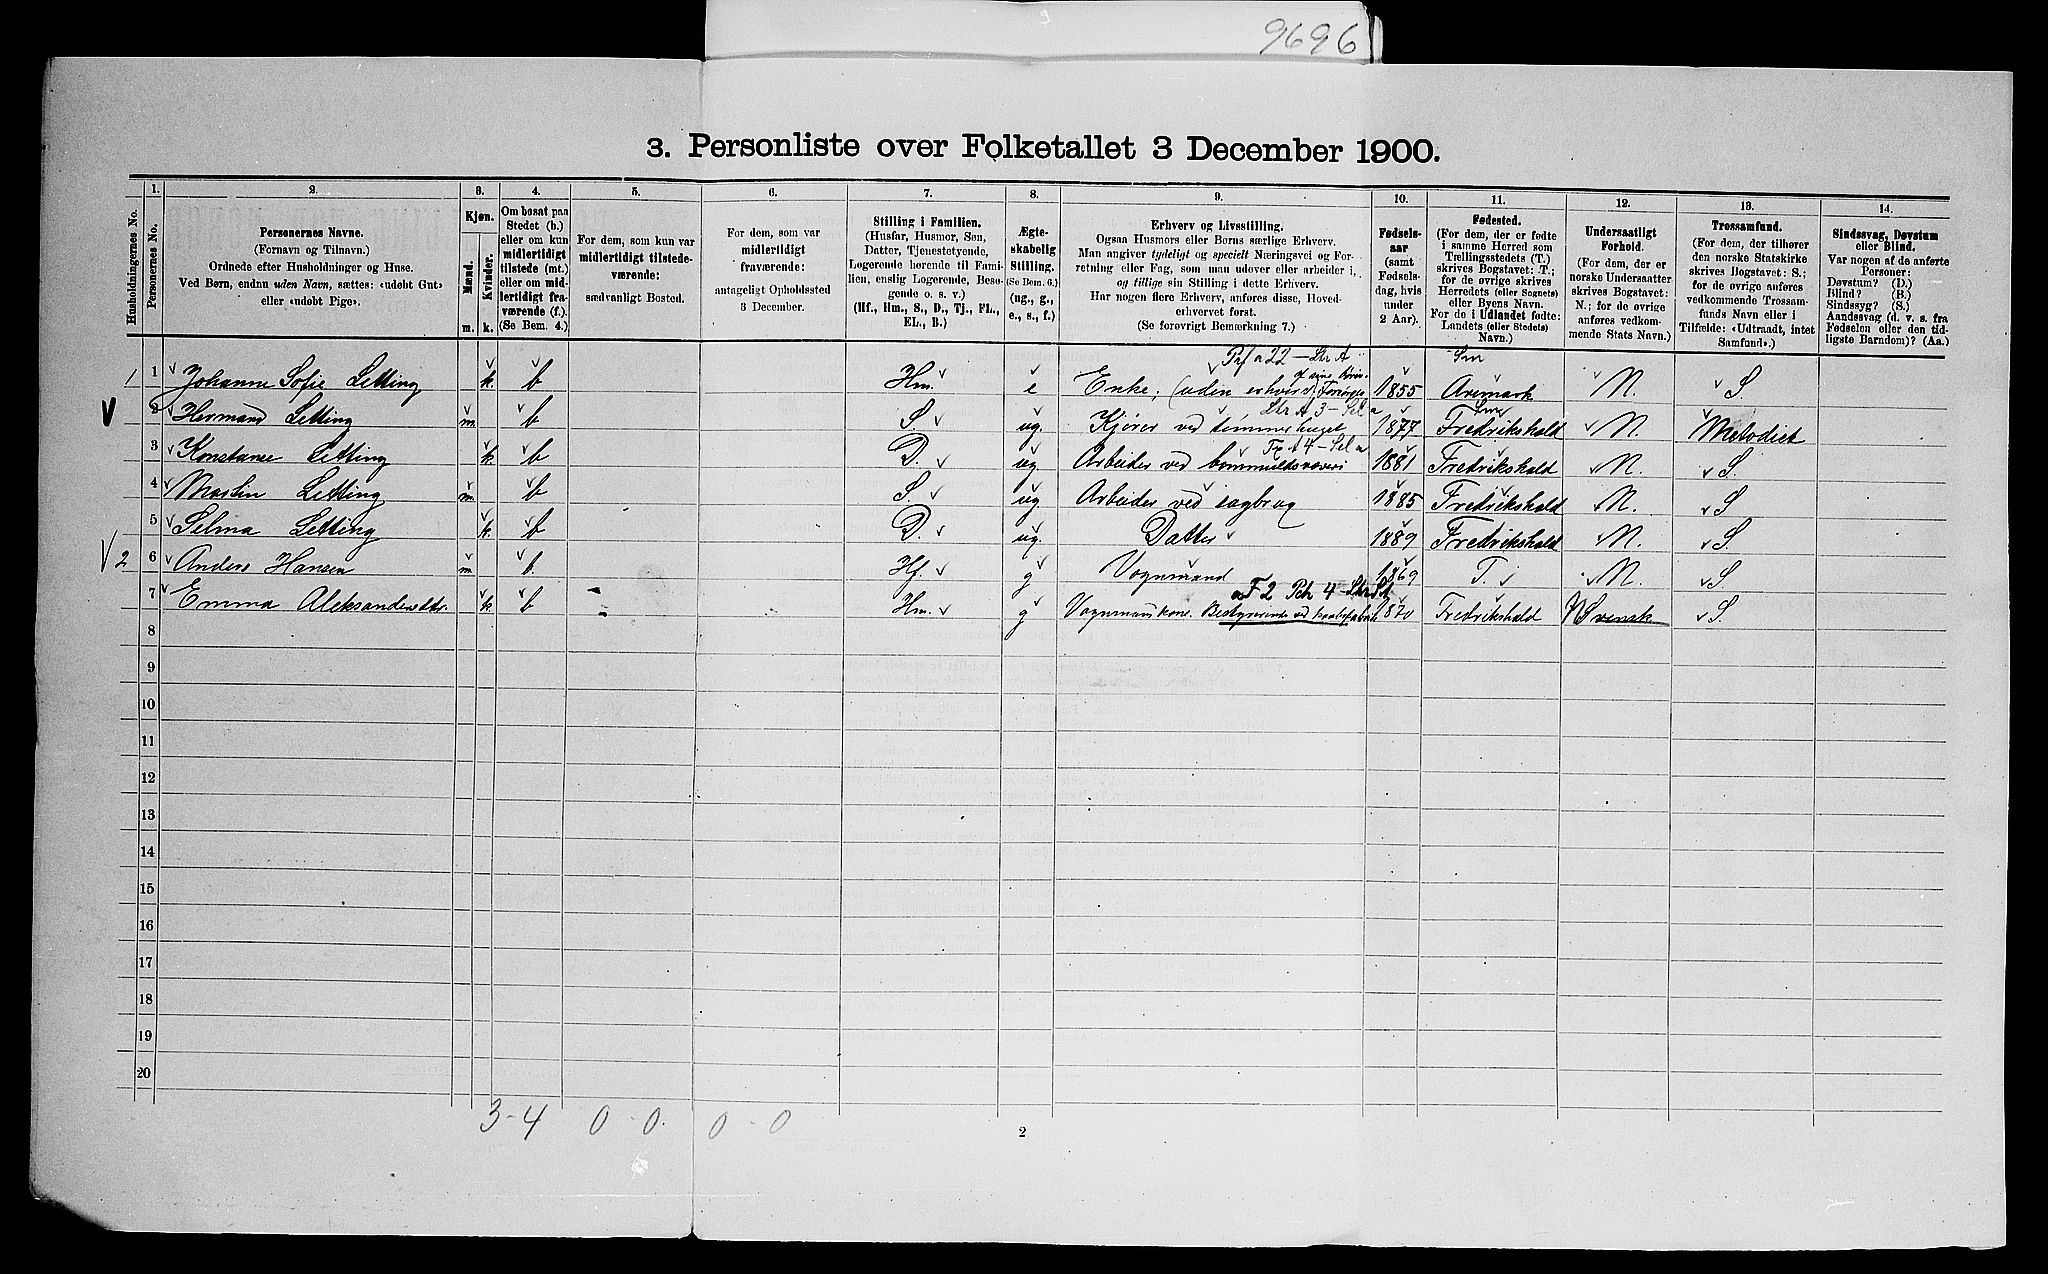 9696
3. Personliste over Folketallet 3 December 1900.
Husholdningernes No.
1. Personernes No.
2. Personernes Navne.
(Fornavn og Tilnavn.)
Ordnede efter Husholdninger og Huse.
Ved Børn, endnu uden Navn, sættes: «udøbt Gut»
eller «udøbt Pige».
3. Kjøn.
Mænd. Kvinder.
m. k.
4. Om bosat paa
Stedet (b.)
eller om kun
midlertidigt
tilstede (mt.)
eller om mid-
lertidigt fra-
værende (f.).
(Se Bem. 4.)
5. For dem, som kun var
midlertidigt tilstede-
værende:
sædvanligt Bosted.
6. For dem, som var
midlertidigt
fraværende:
antageligt Opholdssted
3 December.
7. Stilling i Familien.
(Husfar, Husmor, Søn,
Datter, Tjenestetyende,
Logerende hørende til Fami-
lien, enslig Logerende, Besø-
gende o. s. v.)
(Hf., Hm., S., D., Tj., FL.,
EL., B.)
8. Ægte-
skabelig
Stilling.
(Se Bem. 6.)
(ug., g.,
e., s., f.)
9. Erhverv og Livsstilling.
Ogsaa Husmors eller Børns særlige Erhverv.
Man angiver tydeligt og specielt Næringsvei og For-
retning eller Fag, som man udøver eller arbeider i,
og tillige sin Stilling i dette Erhverv.
Har nogen flere Erhverv, anføres disse, Hoved-
erhvervet først.
(Se forøvrigt Bemærkning 7.)
10. Fødsels-
aar
(samt
Fødsels-
dag, hvis
under
2 Aar).
11. Fødested.
(For dem, der er fødte
i samme Herred som
Tællingsstedets (T.)
skrives Bogstavet: T.;
for de øvrige skrives
Herredets (eller Sognets)
eller Byens Navn.
For de i Udlandet fødte:
Landets (eller Stedets)
Navn.)
12. Undersaatligt
Forhold.
(For dem, der er
norske Undersaatter
skrives Bogstavet:
N.; for de øvrige
anføres vedkom-
mende Stats Navn.)
13. Trossamfund.
(For dem, der tilhører
den norske Statskirke
skrives Bogstavet: S.;
for de øvrige anføres
vedkommende Trossam-
funds Navn eller i
Tilfælde: «Udtraadt, intet
Samfund».)
14. Sindssvag, Døvstum
eller Blind.
Var nogen af de anførte
Personer:
Døvstum? (D.)
Blind? (B.)
Sindssyg? (S.)
Aandssvag (d. v. s. fra
Fødselen eller den tid-
ligste Barndom)? (Aa.)
1 1 Johanne Sofie Letting k. b Hm. e Enke; (uden erhverv) Forsørges af sine Børn 1855 Aremark N. S.
2 Hermand Letting m. b S ug. Kjører ved tømmerhuget 1877 Fredrikshald N. Metodist
3 Konstanse Letting k. b D. ug. Arbeider ved bommuldsvæveri 1881 Fredrikshald N. S.
4 Martin Letting m. b S ug. Arbeider ved sagbrug 1885 Fredrikshald N. S
5 Selma Letting k. b D. ug. Datter 1889 Fredrikshald N. S.
2 6 Anders Hansen m. b. Hf. g Vognmand 1869 T. N. S
7 Emma Aleksandersdtr. k. b Hm. g Vognmanskone. Bestyrerende ved 1870 Fredrikshald N Svensk S.
8
9
10
11
12
13
14
15
16
17
18
19
20
3-4 0-0. 0-0
2